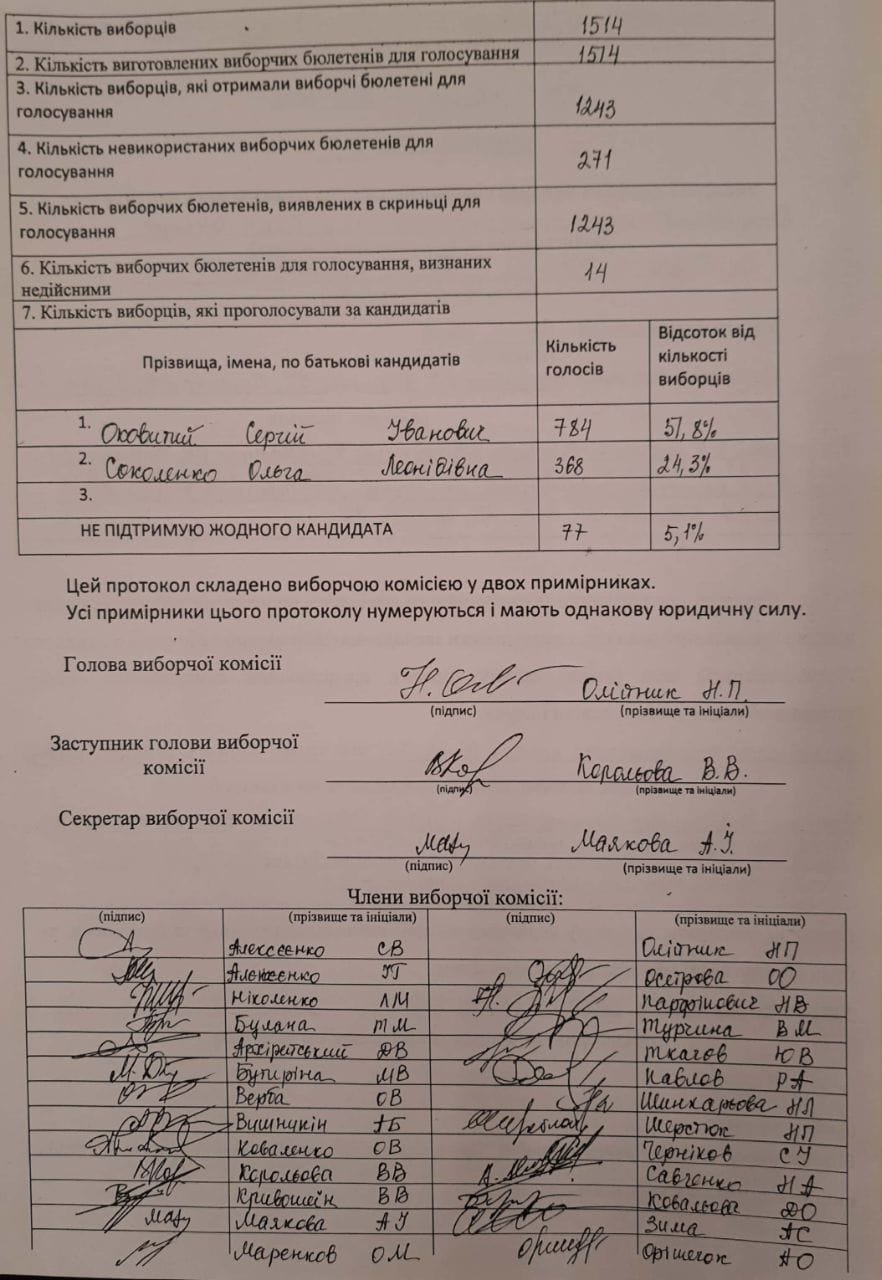 1. Кількість виборців 1514
2. Кількість виготовлених виборчих бюлетенів для голосування 1514
3. Кількість виборців, які отримали виборчі бюлетені для
голосування 1243
4. Кількість невикористаних виборчих бюлетенів для
голосування 271
5. Кількість виборчих бюлетенів, виявлених в скриньці для
голосування 1243
6. Кількість виборчих бюлетенів для голосування, визнаних
недійсними 14
7. Кількість виборців, які проголосували за кандидатів
Прізвища, імена, по батькові кандидатів
Кількість
голосів
Відсоток від
кількості
виборців
1. Оковитий Сергій Іванович 784 51,8%
2. Соколенко Ольга Леонідівна 368 24,3%
3.
НЕ ПІДТРИМУЮ ЖОДНОГО КАНДИДАТА 77 5,1%
Цей протокол складено виборчою комісією у двох примірниках.
Усі примірники цього протоколу нумеруються і мають однакову юридичну силу.
Голова виборчої комісії Олійник Н.П.
(підпис) (прізвище та ініціали)
Заступник голови виборчої
комісії Корольова В.В.
(підпис) (прізвище та ініціали)
Секретар виборчої комісії
Маякова А.І.
(підпис) (прізвище та ініціали)
Члени виборчої комісії:
(підпис) (прізвище та ініціали) (підпис) (прізвище та ініціали)
Алексеєнко СВ Олійник НП
Алексеєнко Осетрова ОО
Ніколенко ЛМ Парфінович НВ
Булана ТМ Турчина ВМ
ДВ Ткачов ЮВ
Бутиріна МВ Павлов РА
Верба ОВ Шинкарьова НЛ
Вишнікін АБ Шерстюк НП
Коваленко ОВ Черніков СУ
Корольова ВВ Савченко НА
Кривошеїн ВВ Ковальова ДО
Маякова АІ Зима АС
Маренков ОМ Орішечок АО